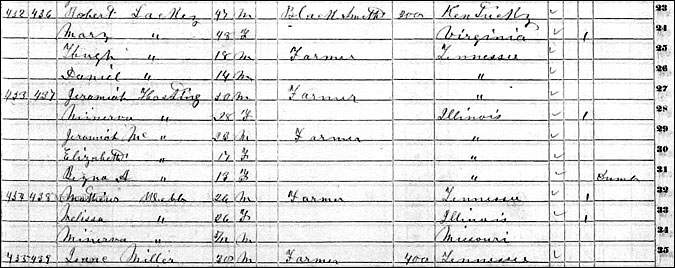 432 436 Robert Lackey 47 M Black Smith 200 Kentucky 23
Mary " 48 F Virginia 1 24
Hugh " 18 M Farmer Tennessee 25
Daniel " 14 M " 26
433 437 Jeramiah 30 M Farmer " 27
Minerva " 28 F Illinois 1 28
Jeramiah Mc " 20 M Farmer " 29
Elizabeth " 17 F " 30
A " 13 F " Dumb 31
434 438 Webb 26 M Farmer Tennessee 1 32
Melissa " 26 F Illinois 1 33
Minerva " M Missouri 34
435 439 Isaac Miller 20 M Farmer 400 Tennessee 35